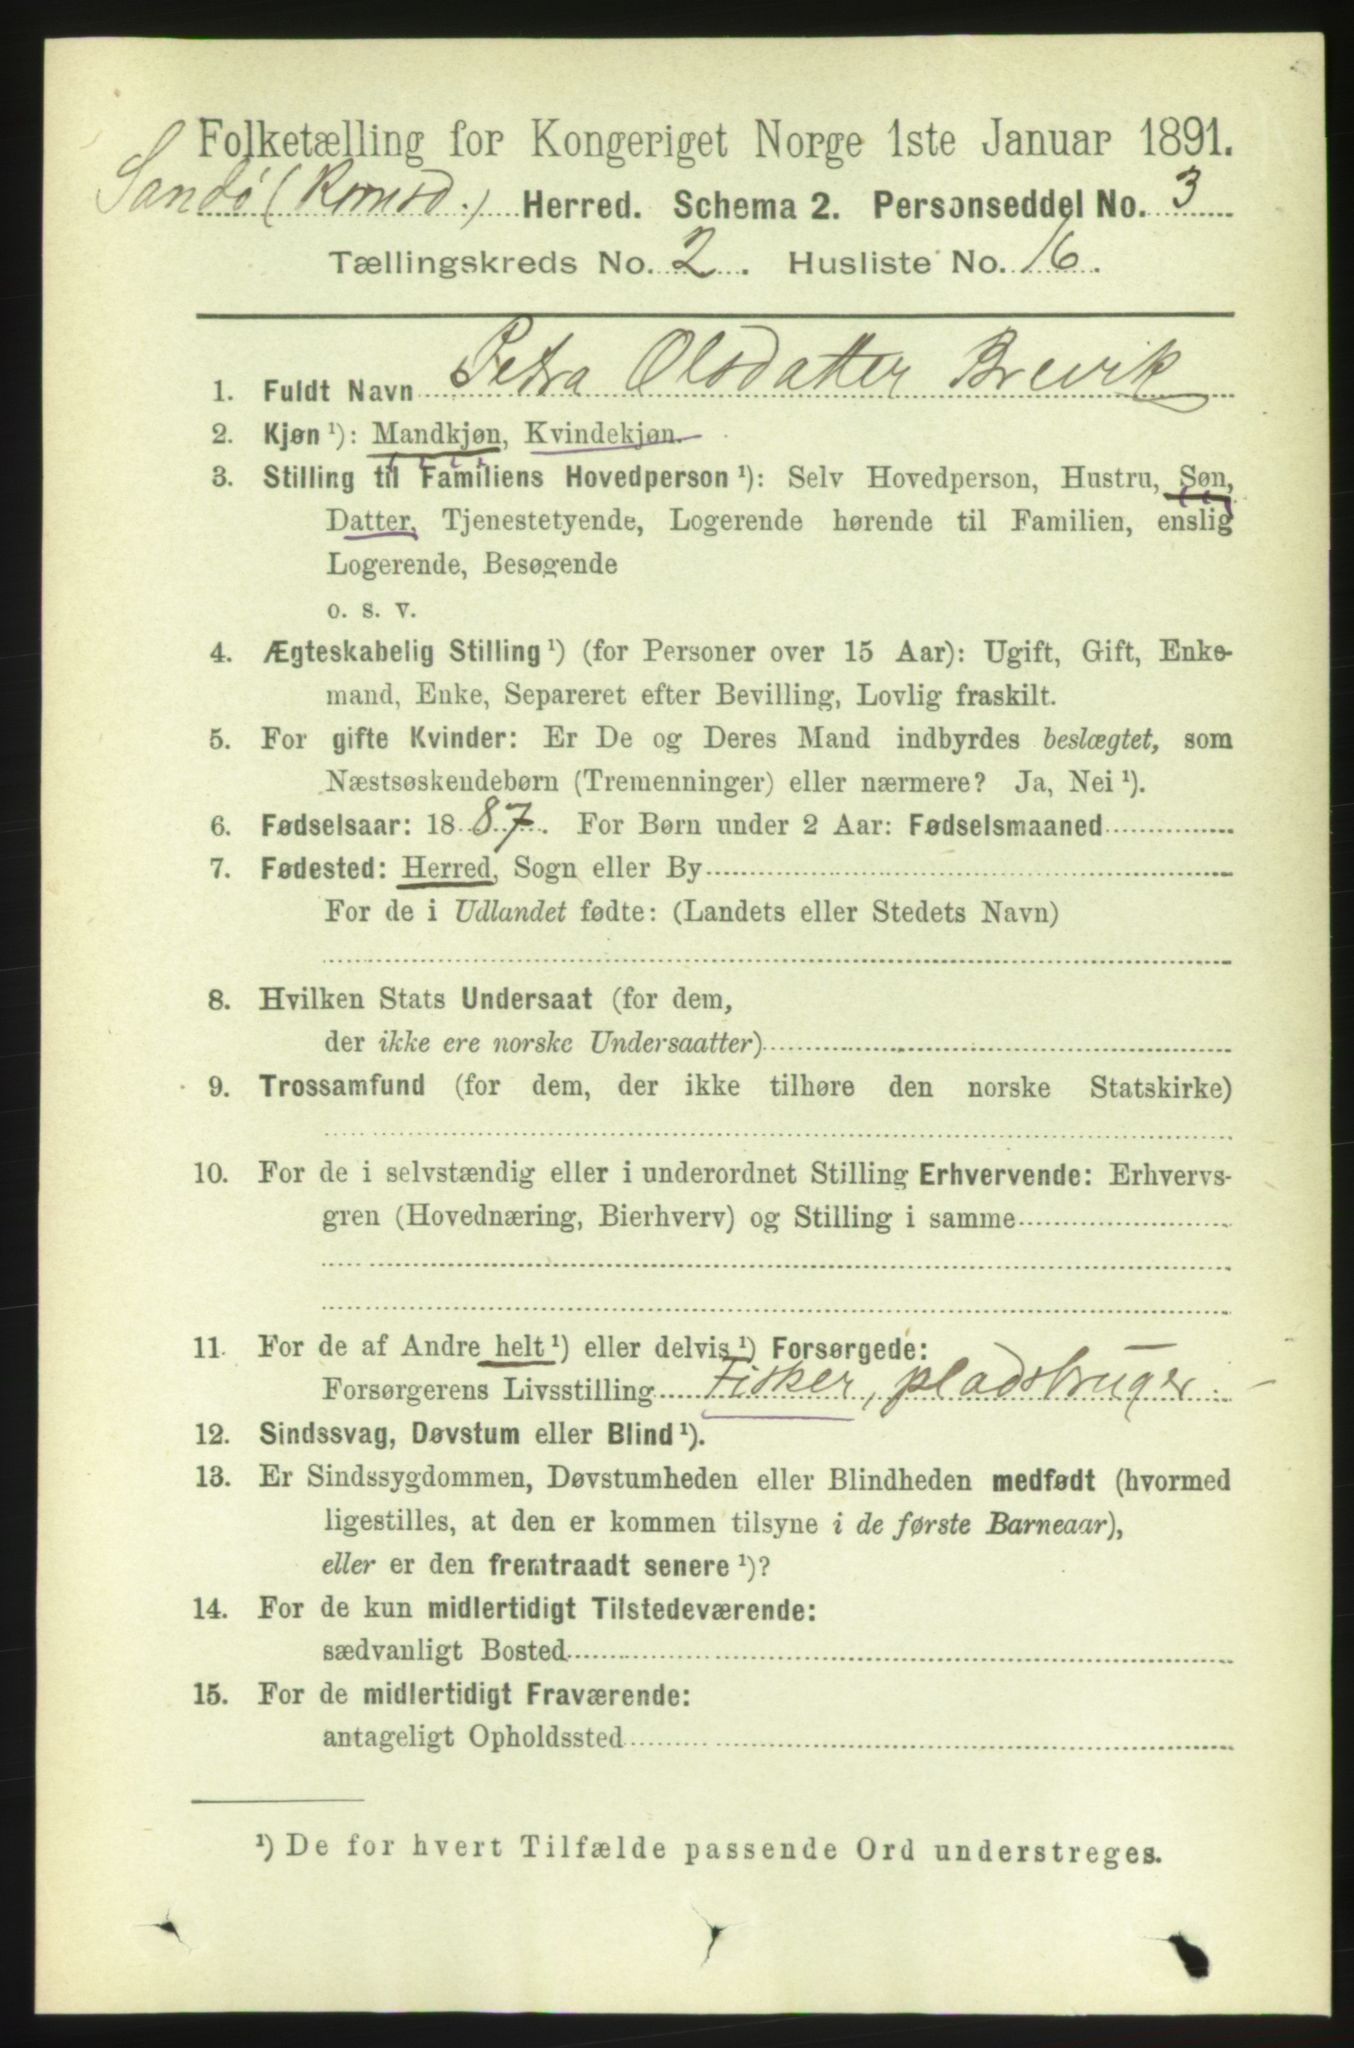 Folketælling for Kongeriget Norge 1ste Januar 1891.
Sandø (Romsd.) Herred. Schema 2. Personseddel No. 3
Tællingskreds No. 2. Husliste No. 16.
1. Fuldt Navn Petra Olsdatter Brevik
2. Kjøn ¹): Mandkjøn, Kvindekjøn.
3. Stilling til Familiens Hovedperson ¹): Selv Hovedperson, Hustru, Søn,
Datter, Tjenestetyende, Logerende hørende til Familien, enslig
Logerende, Besøgende
o. s. v.
4. Ægteskabelig Stilling ¹) (for Personer over 15 Aar): Ugift, Gift, Enke-
mand, Enke, Separeret efter Bevilling, Lovlig fraskilt.
5. For gifte Kvinder: Er De og Deres Mand indbyrdes beslægtet, som
Næstsøskendebørn (Tremenninger) eller nærmere? Ja, Nei ¹).
6. Fødselsaar: 1887. For Børn under 2 Aar: Fødselsmaaned
7. Fødested: Herred, Sogn eller By
For de i Udlandet fødte: (Landets eller Stedets Navn)
8. Hvilken Stats Undersaat (for dem,
der ikke ere norske Undersaatter)
9. Trossamfund (for dem, der ikke tilhøre den norske Statskirke)
10. For de i selvstændig eller i underordnet Stilling Erhvervende: Erhvervs-
gren (Hovednæring, Bierhverv) og Stilling i samme
11. For de af Andre helt ¹) eller delvis ¹) Forsørgede:
Forsørgerens Livsstilling Fisker, pladsbruger
12. Sindssvag, Døvstum eller Blind ¹).
13. Er Sindssygdommen, Døvstumheden eller Blindheden medfødt (hvormed
ligestilles, at den er kommen tilsyne i de første Barneaar),
eller er den fremtraadt senere ¹)?
14. For de kun midlertidigt Tilstedeværende:
sædvanligt Bosted
15. For de midlertidigt Fraværende:
antageligt Opholdssted
¹) De for hvert Tilfælde passende Ord understreges.